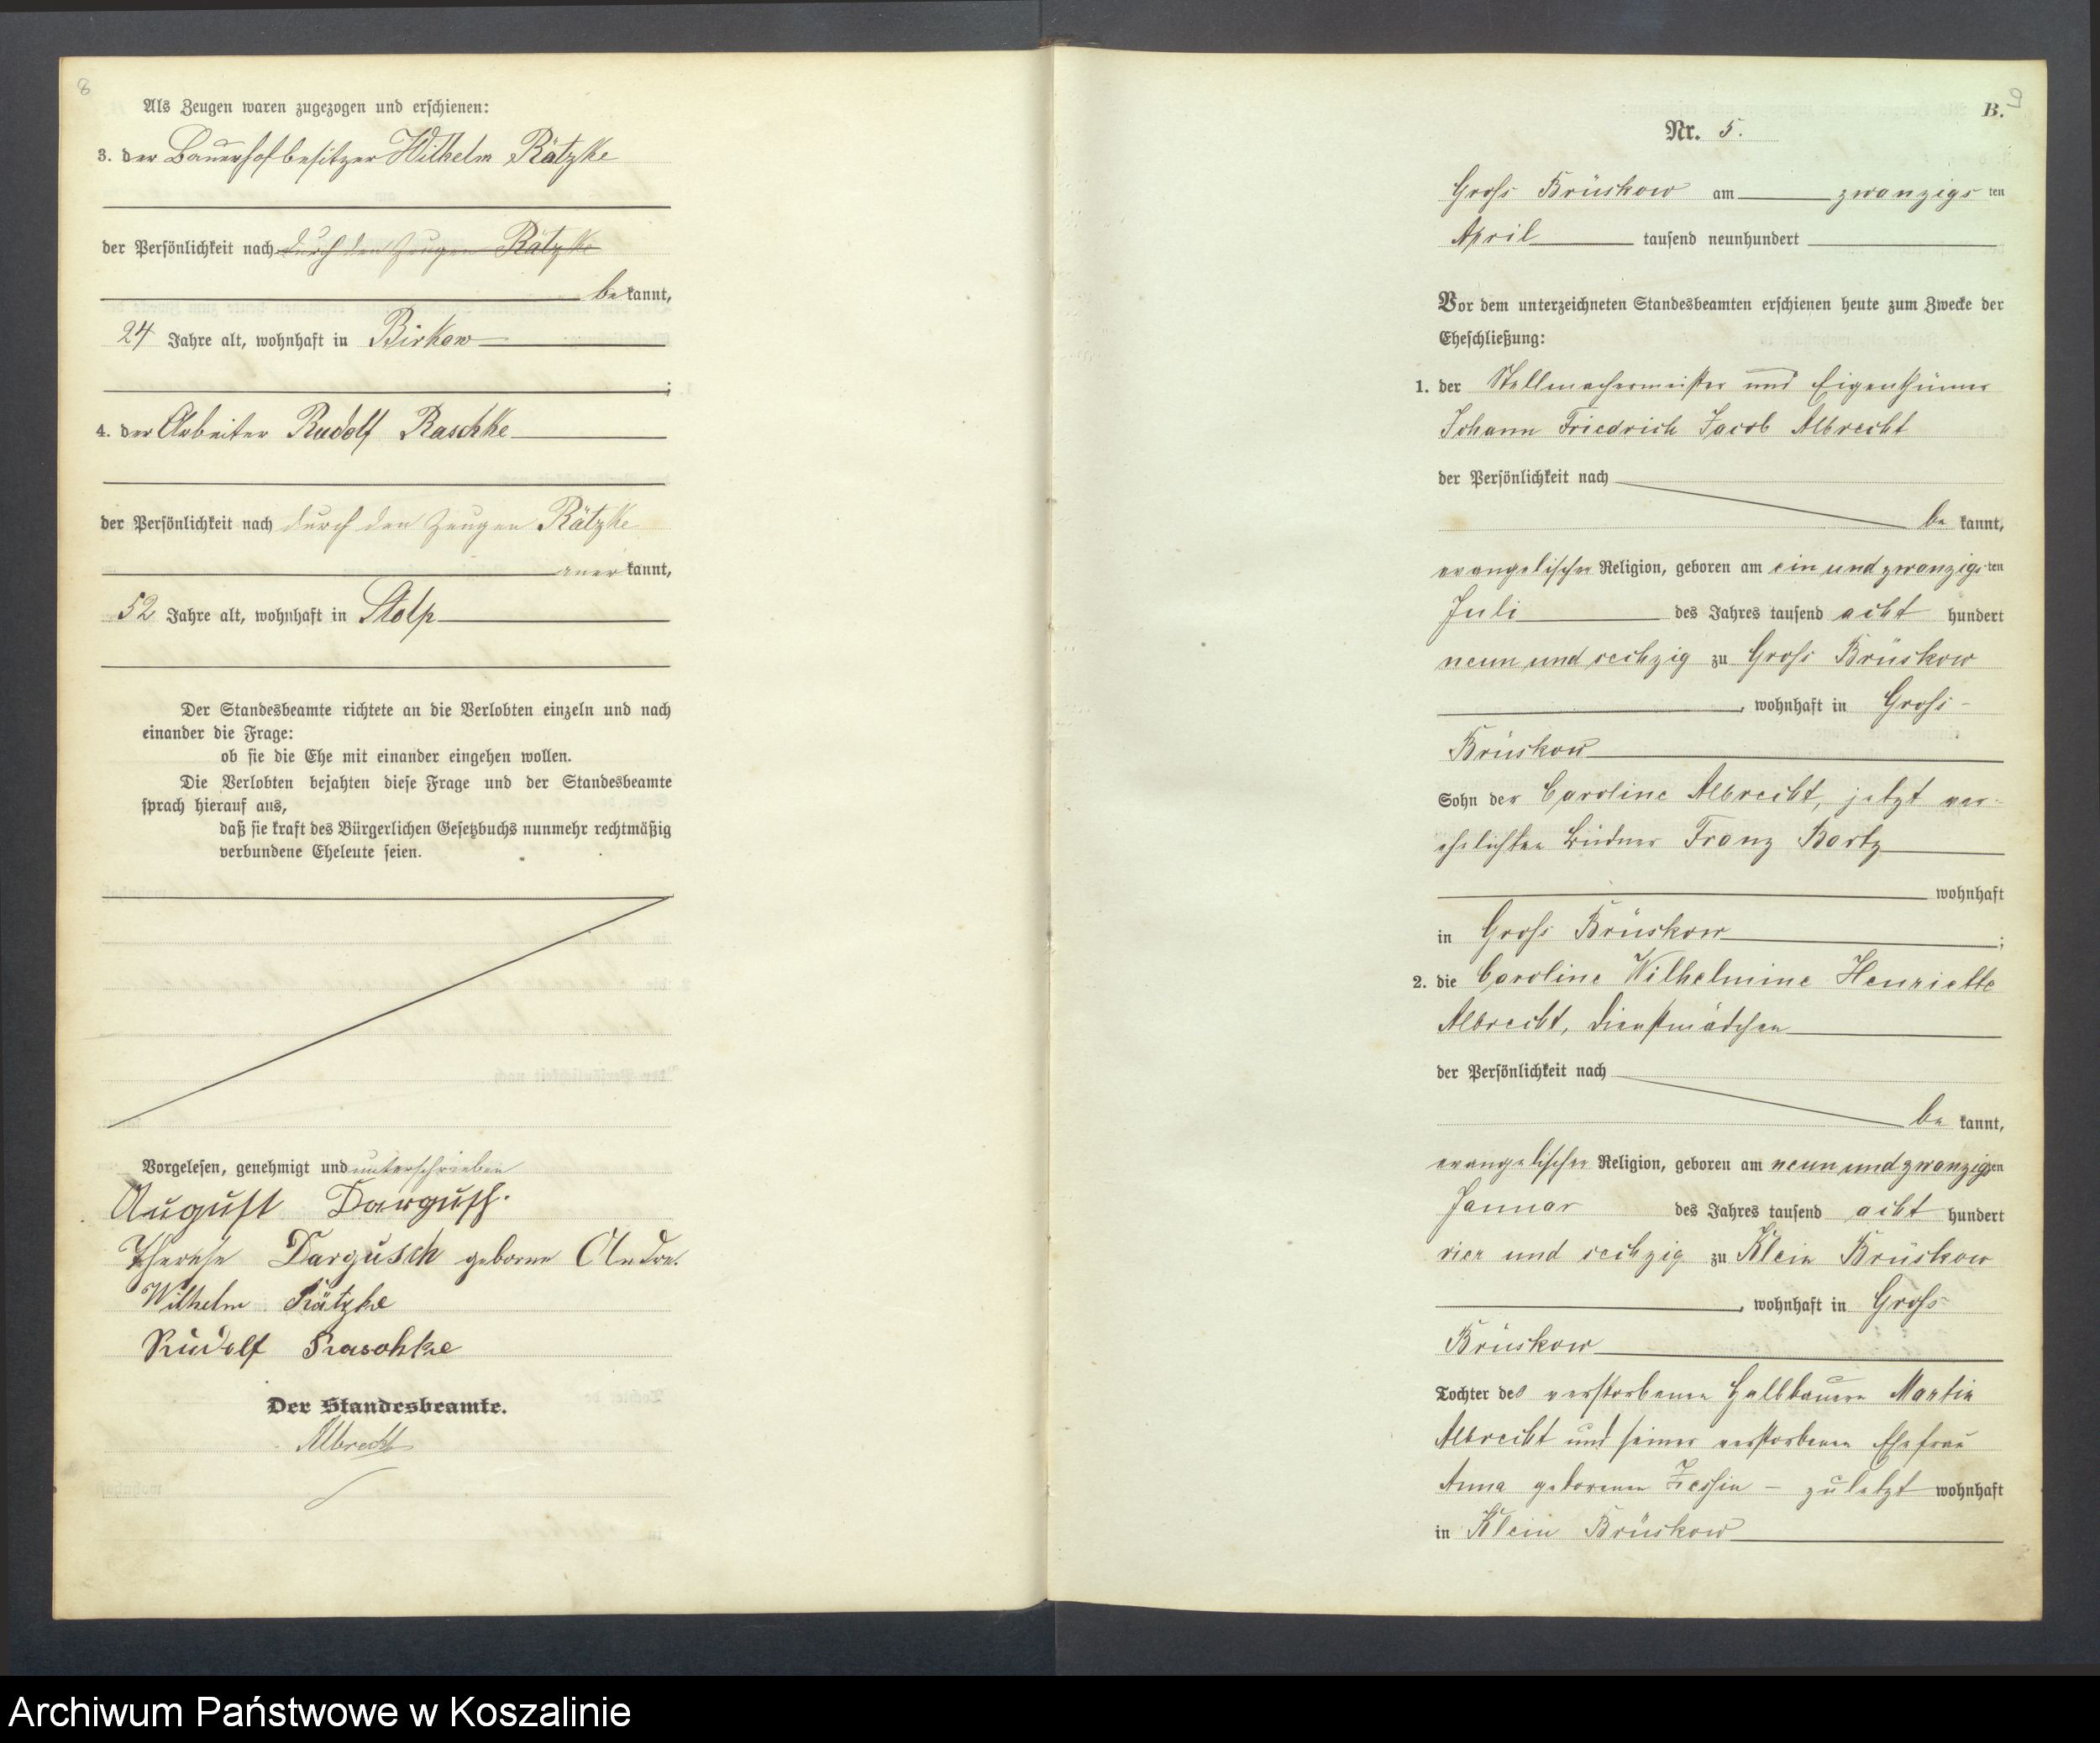 8
Als Zeugen waren zugezogen und erschienen:
3. der Bauerhofbesitzer Wilhelm Rätzke
der Persönlichkeit nach durch den Zeugen Rätzke
bekannt,
24 Jahre alt, wohnhaft in Birkow
;
4. der Arbeiter Rudolf Raschke
der Persönlichkeit nach durch den Zeugen Rätzke
anerkannt,
52 Jahre alt, wohnhaft in Stolp
Der Standesbeamte richtete an die Verlobten einzeln und nach
einander die Frage:
ob sie die Ehe mit einander eingehen wollen.
Die Verlobten bejahten diese Frage und der Standesbeamte
sprach hierauf aus,
daß sie kraft des Bürgerlichen Gesetzbuchs nunmehr rechtmäßig
verbundene Eheleute seien.
Vorgelesen, genehmigt und unterschrieben
August Dargusch.
Therese Dargusch geborne
Wilhelm Rätzke
Rudolf Raschke
Der Standesbeamte.
Albrecht
9
B.
Nr. 5.
Gross Brüskow am zwanzigsten
April tausend neunhundert
Vor dem unterzeichneten Standesbeamten erschienen heute zum Zwecke der
Eheschließung:
1. der Stellmachermeister und Eigenthümer
Johann Friedrich Jacob Albrecht
der Persönlichkeit nach
bekannt,
evangelischer Religion, geboren am ein und zwanzigsten
Juli des Jahres tausend acht hundert
neun und sechzig zu Gross Brüskow
, wohnhaft in Gross-
Brüskow
Sohn der Caroline Albrecht, jetzt ver-
ehelichten Büdner Franz Bartz
wohnhaft
in Gross Brüskow ;
2. die Caroline Wilhelmine Henriette
Albrecht, Dienstmädchen
der Persönlichkeit nach
bekannt,
evangelischer Religion, geboren am neun und zwanzigsten
Januar des Jahres tausend acht hundert
vier und sechzig zu Klein Brüskow
, wohnhaft in Gross-
Brüskow
Tochter des verstorbenen Halbbauern Martin
Albrecht und seiner verstorbenen Ehefrau
Anna geborenen Zessin – zuletzt wohnhaft
in Klein Brüskow
Archiwum Państwowe w Koszalinie